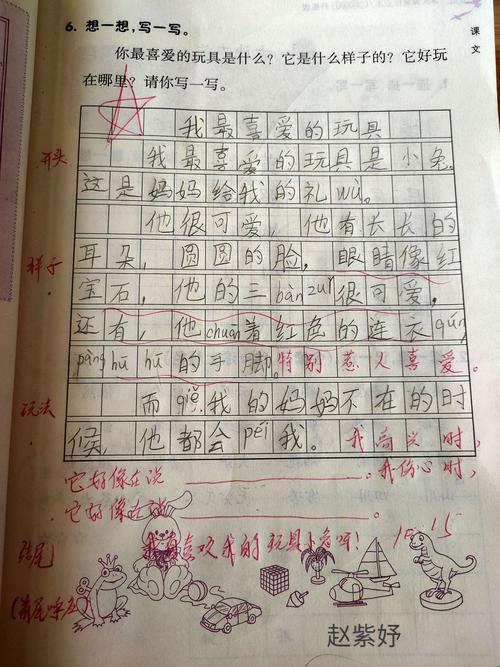 课文
6. 想一想,写一写。
你最喜爱的玩具是什么?它是什么样子的?它好玩
在哪里?请你写一写。
我最喜爱的玩具
开头
我最喜爱的玩具是小兔。
这是妈妈给我的礼wù。
他很可爱,他有长长的
样子
耳朵,圆圆的脸,眼睛像红
宝石,他的三bàn zuǐ很可爱,
还有,他chuān着红色的连衣qún,
pàng hū hū的手脚。特别惹人喜爱。
玩法
而qiě我的妈妈不在的时
候,他都会péi我。我高兴时,
它好像在说。我伤心时,
它好像在说。
结尾
我喜欢我的玩具小兔呀!
10.15
(首尾呼应)
赵紫妤